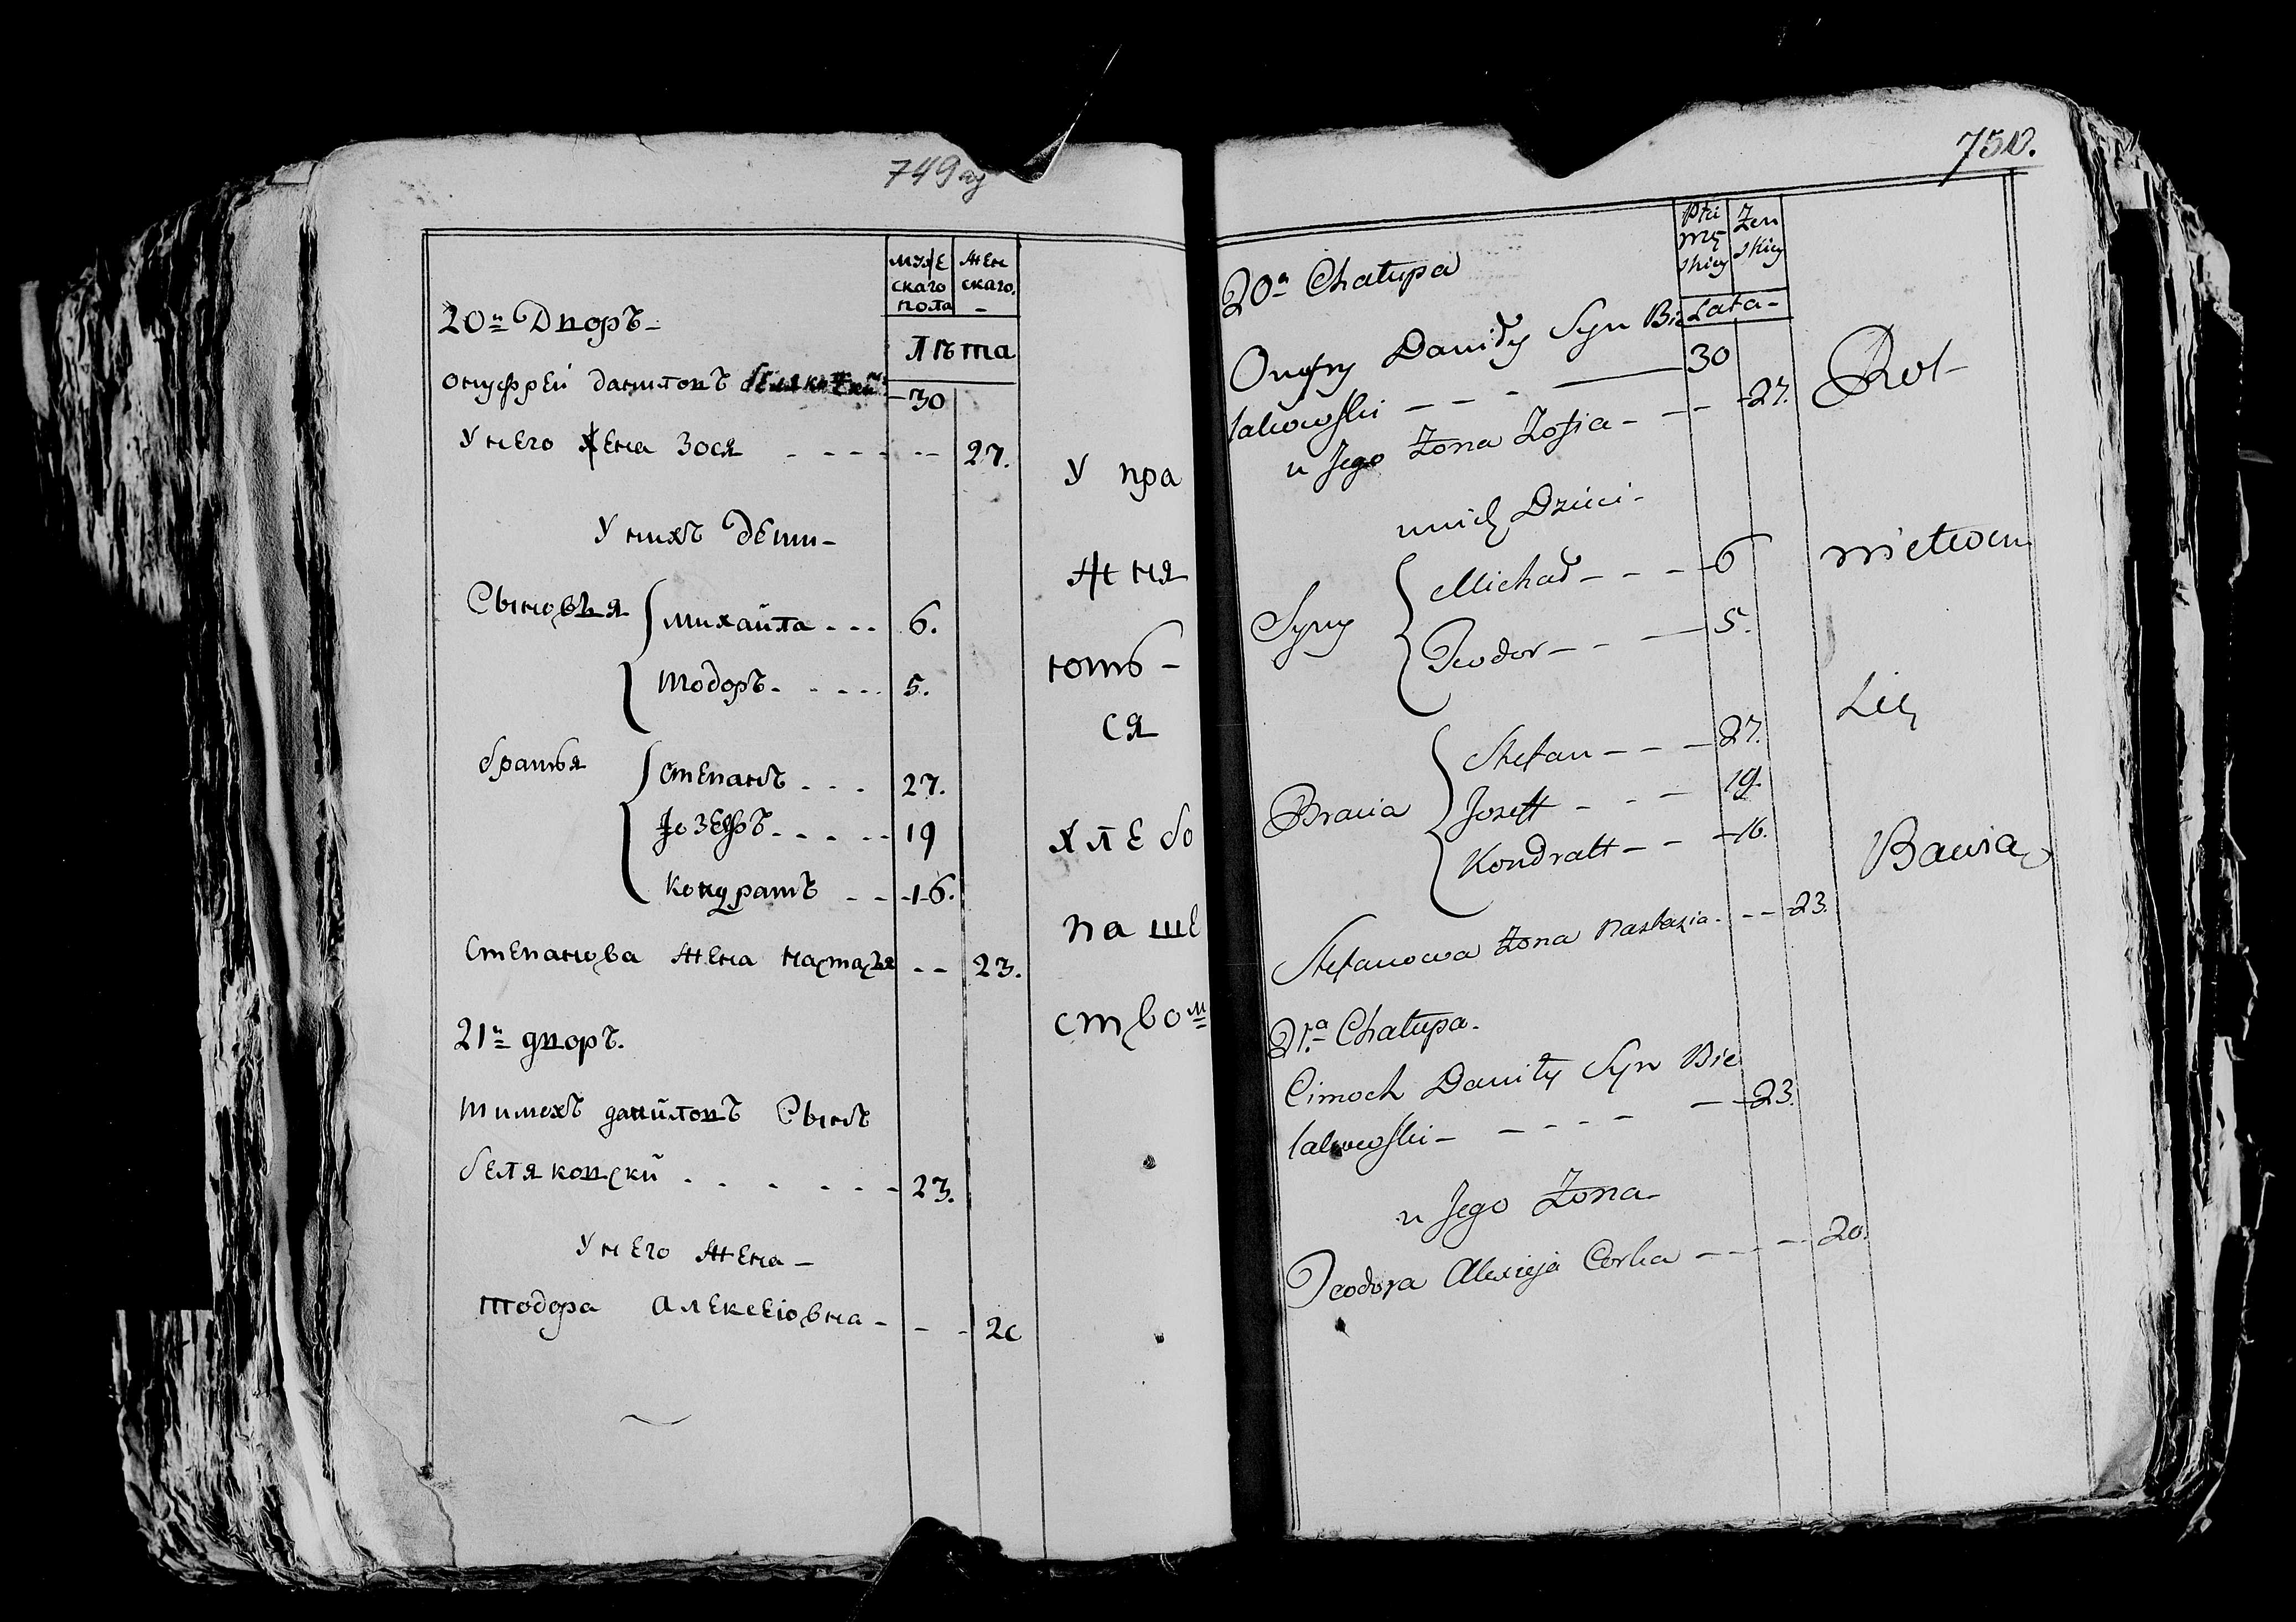 749
муже
скаго
пола
жен
скаго.
Лѣта
20й Дворъ
онуфрей даниловъ 30
У него жена Зося 27.
У нихъ дети
Сыновья
михайла 6.
тодоръ 5.
братья
степанъ 27.
Іозефъ 19
кондратъ 16.
Степанова жена настасья 23.
21й дворъ.
тимохъ данилов сынъ
беляковский 23.
У него жена
тодора алексеіовна 20
Упра
жня
ютъ
ся
хлебо
паше
ством
20a Chałupa
Płci
Mę
skiey
Żeń
skiey
Lata
Onufry Daniły Syn Bie
lakowski 30
u Jego Żona Zofia 27.
u nich Dzieci
Syny
Michał 6
Teodor 5.
Bracia
Stefan 27.
Jozeff 19.
Kondratt 16.
Stefanowa Żona Nastazia 23.
21.a Chałupa.
Cimoch Daniły Syn Bie
lakowski 23.
u Jego Żona
Teodora Alexieja Corka 20.
Rol
nictwem
Się
Bawią